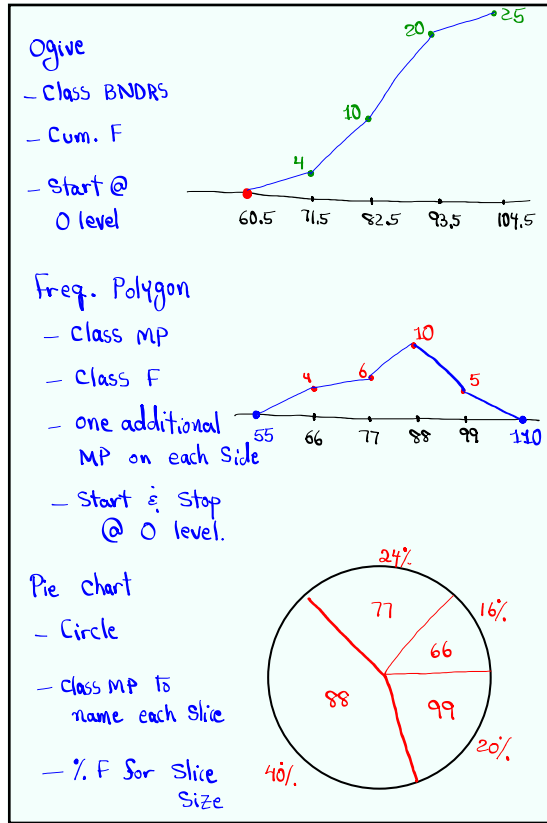 Ogive
- Class BNDRS
- Cum. F
- Start @
0 level
4
10
20
25
60.5 71.5 82.5 93.5 104.5
Freq. Polygon
- Class MP
- Class F
- one additional
MP on each Side
- Start & Stop
@ 0 level.
4
6
10
5
55 66 77 88 99 110
Pie chart
- Circle
- Class MP to
name each Slice
- % F for Slice
Size
24%
77
16%
66
88
99
20%
40%